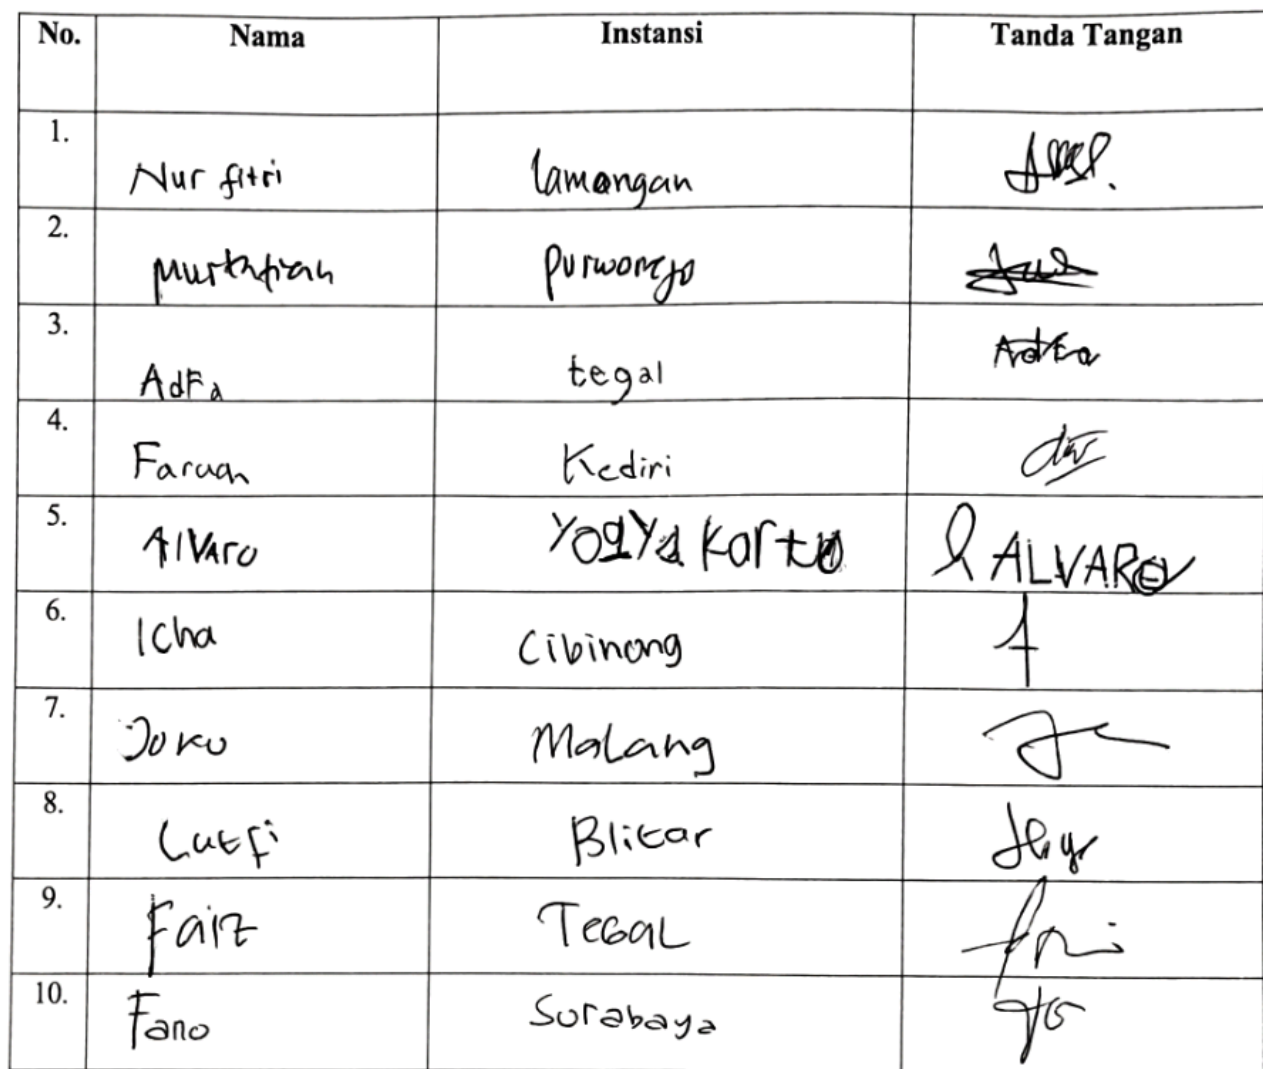 No. Nama Instansi Tanda Tangan
1. Nur fitri lamongan
2. purworejo
3. AdFa tegal AdFa
4. Kediri
5. AlVaro Yogyakarta ALVARO
6. Icha Cibinong
7. Malang
8. Lutfi Blitar
9. Faiz TEGAL
10. Fano Surabaya